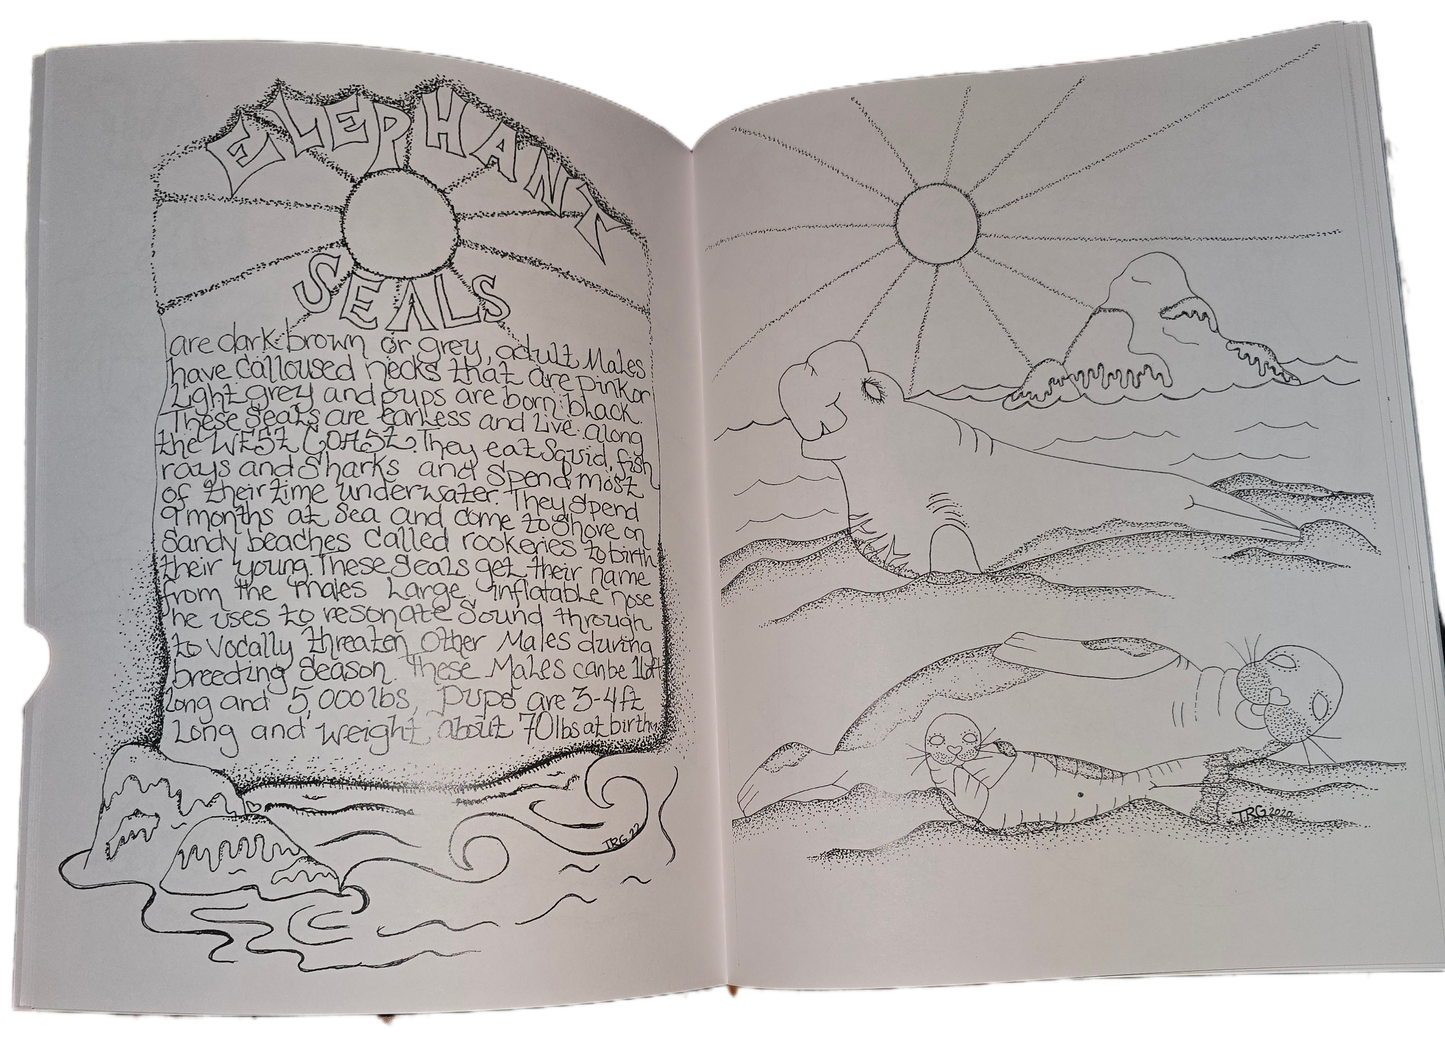 ELEPHANT
SEALS
are dark-brown or grey, adult Males
have calloused necks that are pink or
Light grey and pups are born black.
These Seals are earless and Live along
the WEST COAST. They eat Squid, fish
rays and Sharks and Spend most
of their time underwater. They Spend
9 months at Sea and come to Shore on
Sandy beaches called rookeries to birth
their young. These Seals get their name
from the Males Large, inflatable nose
he uses to resonate Sound through
to Vocally threaten Other Males during
breeding Season. These Males can be
long and 5,000 lbs, Pups are 3-4 ft
Long and weight about 70 lbs at birth
TRG 22
TRG 2020